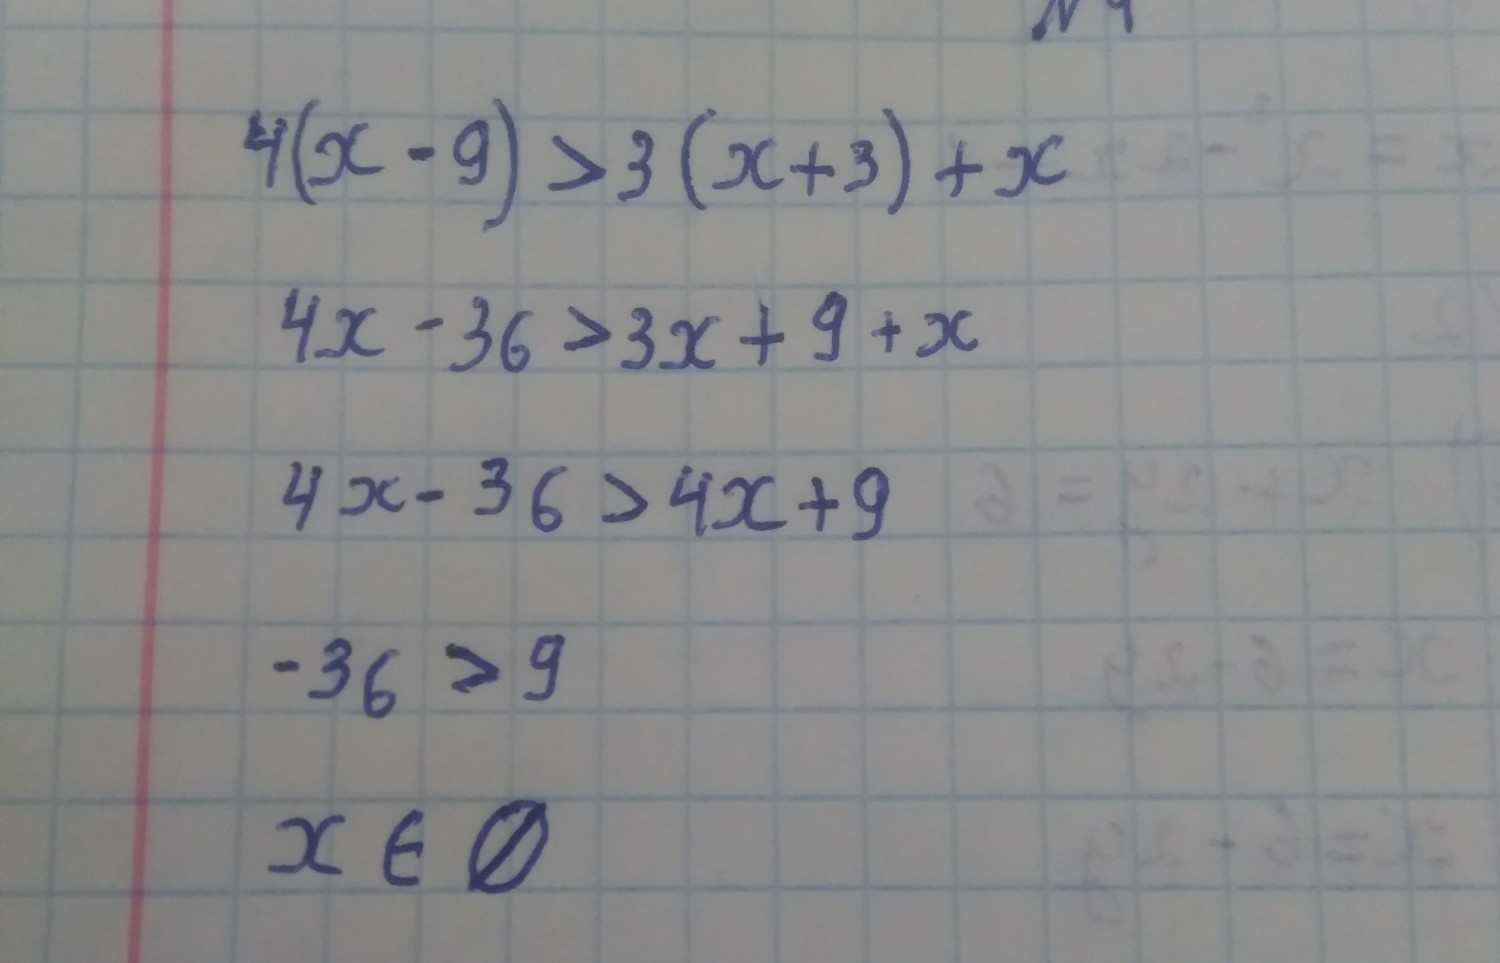 №4
4(x-9)>3(x+3)+x
4x-36>3x+9+x
4x-36>4x+9
-36>9
x∈∅